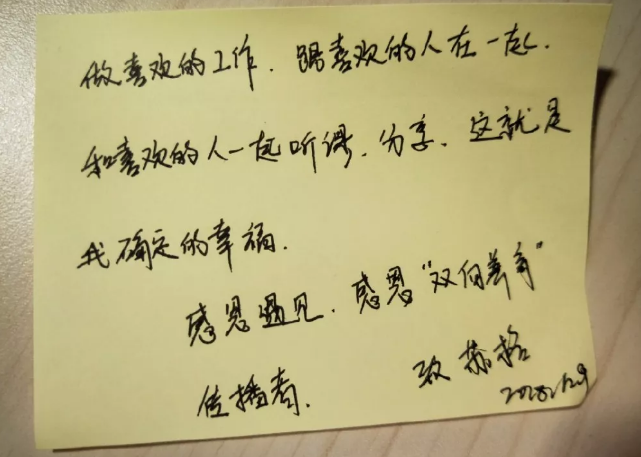 做喜欢的工作、跟喜欢的人在一起、
和喜欢的人一起听课、分享、这就是
我确定的幸福.
感恩遇见、感恩“双向养育”
传播者.
致 苏格